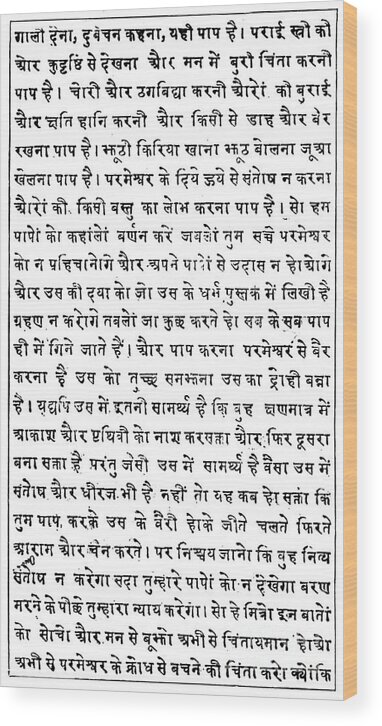 गाली देना, दुर्बचन कहना, यही पाप है। पराई स्त्री की
और कुदृष्टि से देखना और मन में बुरी चिंता करनी
पाप है। चोरी और ठगबिद्या करनी औरों की बुराई
और क्षति हानि करनी और किसी से डाह और बैर
रखना पाप है। झूठी किरिया खाना झूठ बोलना जूआ
खेलना पाप है। परमेश्वर के दिये हुये से संतोष न करना
औरों की किसी बस्तु का लोभ करना पाप है। सो हम
पापों को कहांलों बर्णन करें जबलों तुम सच्चे परमेश्वर
को न पहिचानोगे और अपने पापों से उदास न होओगे
और उस की दया को जो उस के धर्म पुस्तक में लिखी है
ग्रहण न करोगे तबलों जो कुछ करते हो सब के सब पाप
ही में गिने जाते हैं। और पाप करना परमेश्वर से बैर
करना है उस को तुच्छ समझना उस का द्रोही बन्ना
है। यद्यपि उस में इतनी सामर्थ्य है कि वुह क्षणमात्र में
आकाश और पृथिवी को नाश करसक्ता और फिर दूसरा
बना सक्ता है परंतु जैसी उस में सामर्थ्य है वैसा उस में
संतोष और धीरज भी है नहीं तो यह कब हो सक्ता कि
तुम पाप करके उस के बैरी होके जीते चलते फिरते
आराम और चैन करते। पर निश्चय जानो कि वुह नित्य
संतोष न करेगा सदा तुम्हारे पापों को न देखेगा बरण
मरने के पीछे तुम्हारा न्याय करेगा। सो हे मित्रो इन बातों
को सोचो और मन से बूझो अभी से चिंतायमान होओ
अभी से परमेश्वर के क्रोध से बचने की चिंता करो क्योंकि